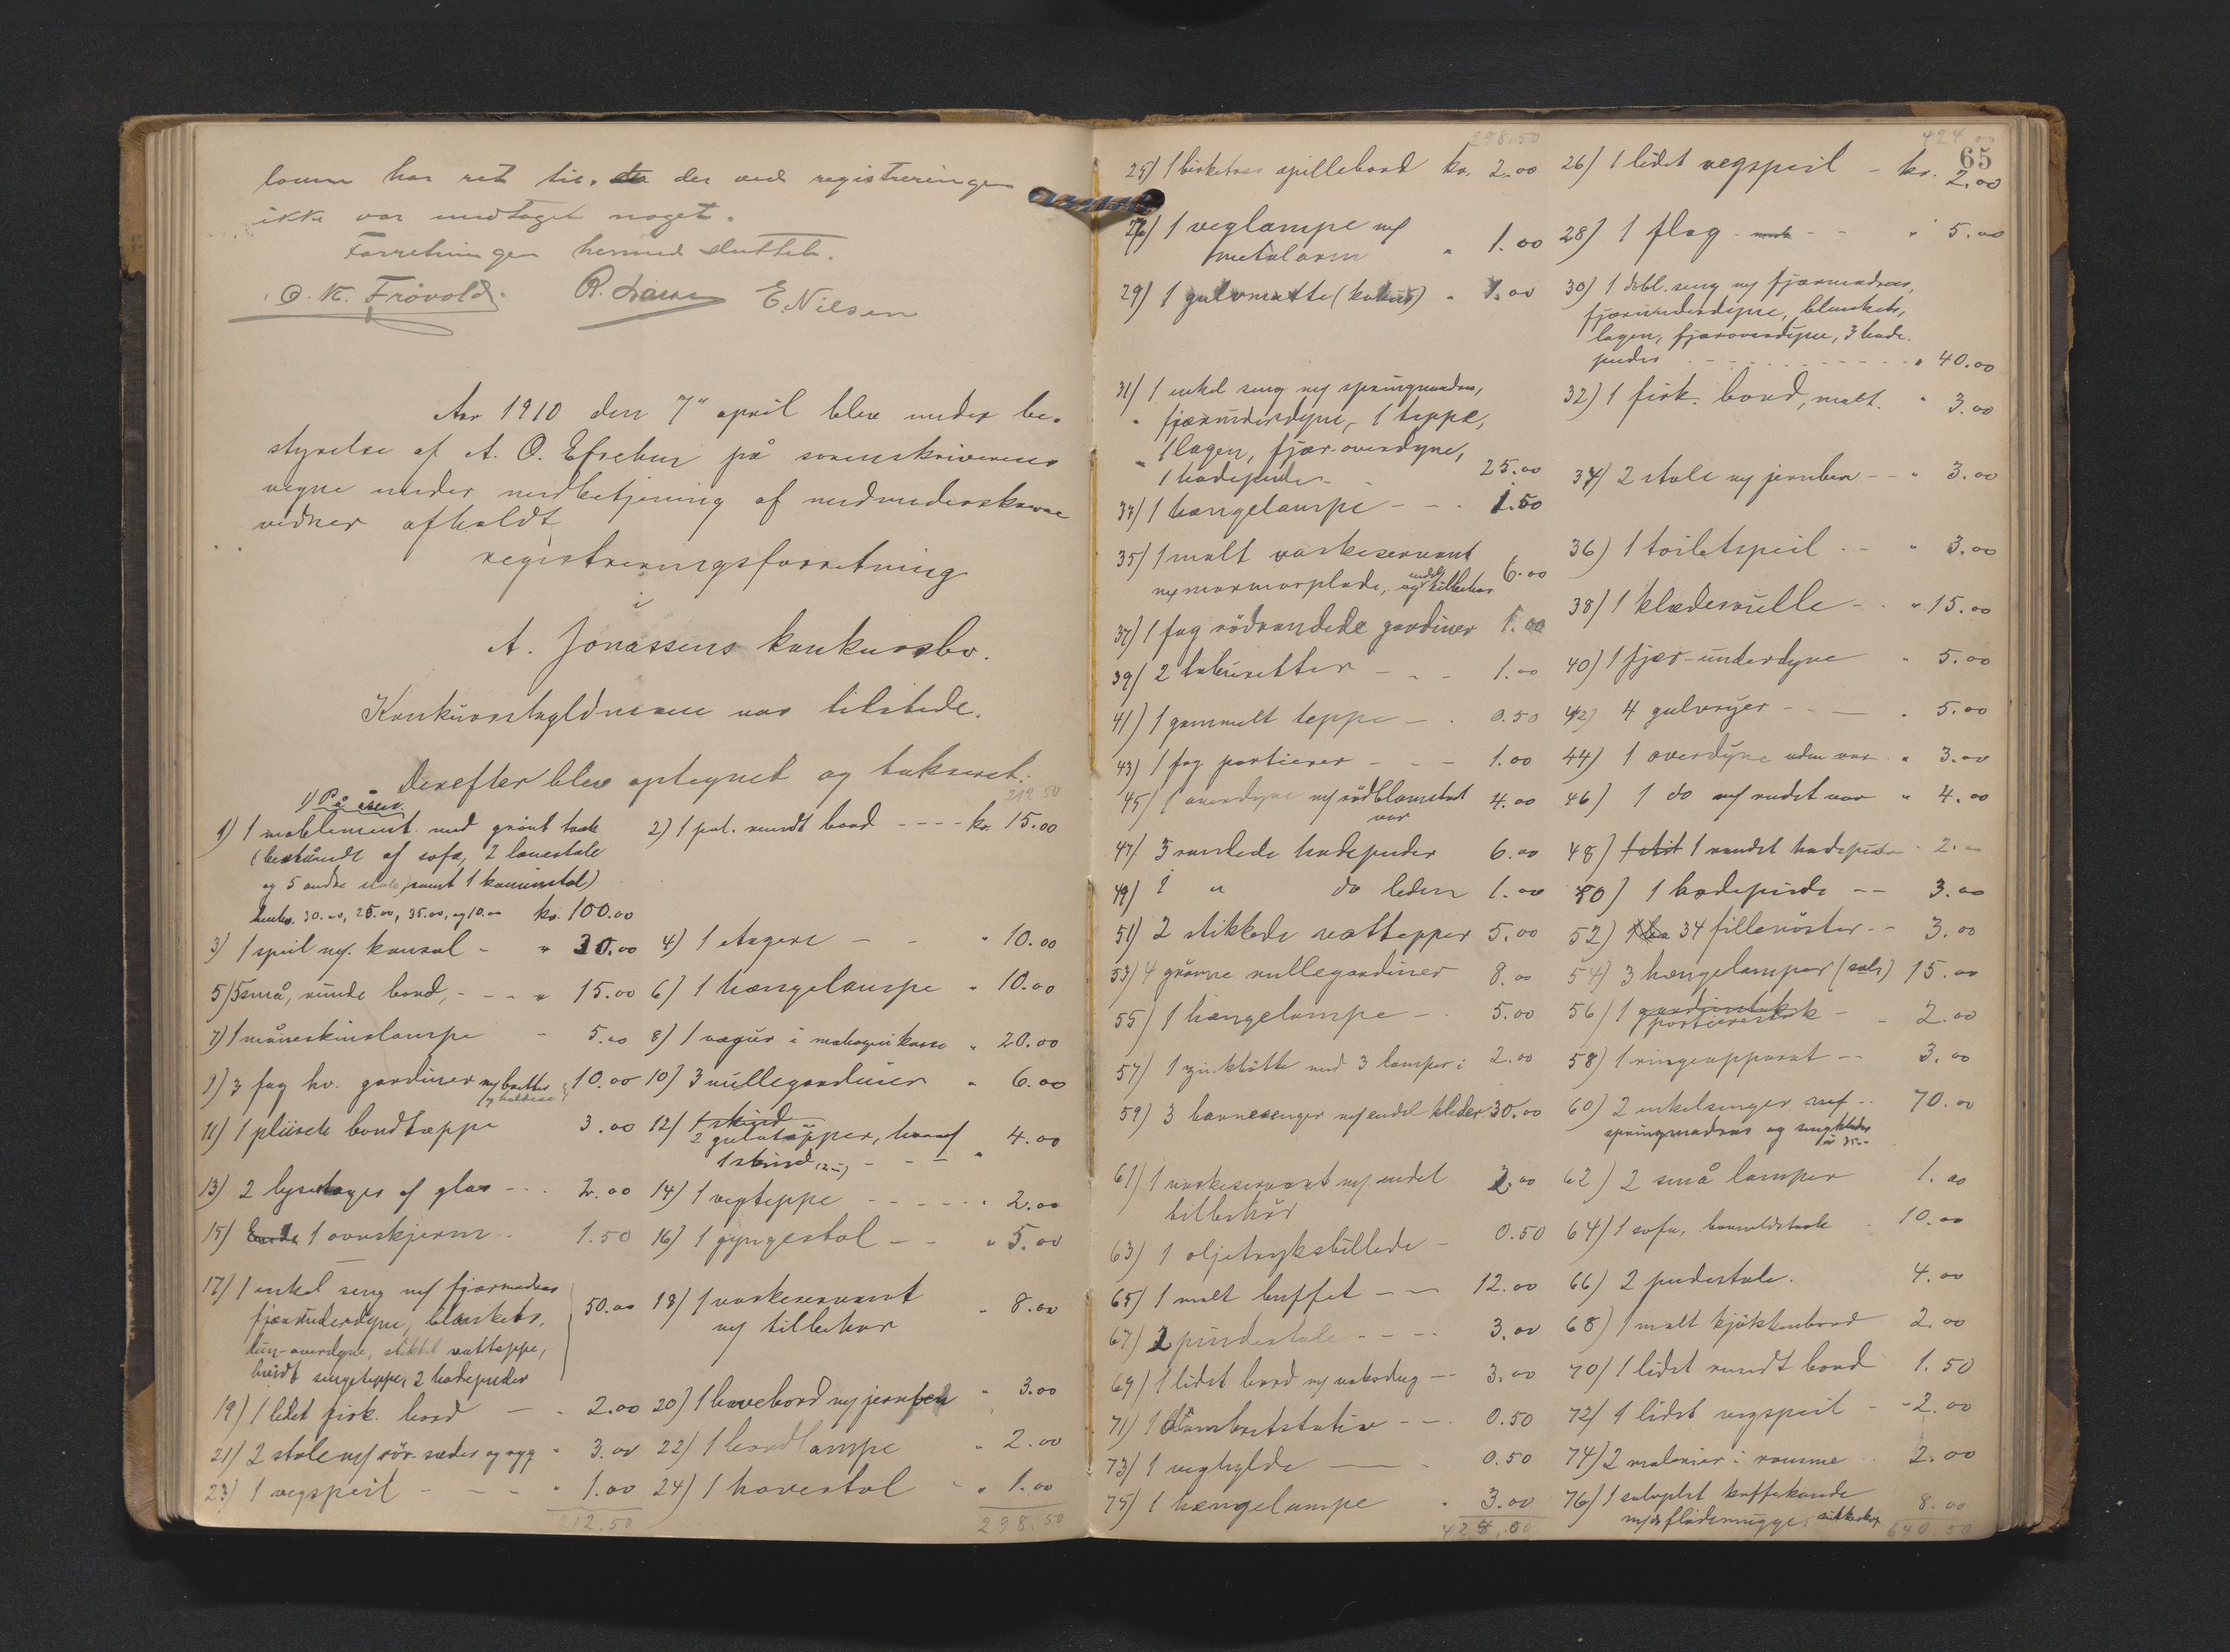 loven har ret til, da der ved registreringen
ikke var undtaget noget.
Forretningen hermed sluttet.
O. K. Frövold. R. E. Nilsen
Aar 1910 den 7" april blev under be-
styrelse af A. O. på sorenskriverens
vegne under medbetjening af medunderskrevne
vidner afholdt
registreringsforretning
i
A. Jonassens konkursbo.
Konkursskyldneren var tilstede.
Derefter blev optegnet og takseret:
212.50
1) På
1) 1 meublement med grönt træk
(bestående af sofa, 2 lænestole
og 5 andre stole, samt 1 kaminstol)
henhv. 30.00, 25.00, 35.00, og 10.00 kr. 100.00
2) 1 pol. rundt bord - - - - kr. 15.00
3) 1 speil m/ konsol - " 30.00
4) 1 etagere - - " 10.00
5) 5 små, runde bord, - - - " 15.00
6) 1 hængelampe " 10.00
7) 1 måneskinslampe - 5.00
8) 1 vægur i mahognikasse " 20.00
9) 3 fag hv. gardiner m/ bretter og holdere 10.00
10) 3 rullegardiner " 6.00
11) 1 plüsch bordtæppe 3.00
12) 1 skind
2 gulvtæpper, hvoraf
1 skind (2.-) - - - " 4.00
13) 2 lysestager af glas - - . 2.00
14) 1 vegteppe - - - - - " 2.00
15) 1 ovnskjerm - 1.50
16) 1 gyngestol - - " 5.00
17) 1 enkel seng m/ fjærmadras
fjærunderdyne, blankets,
dun-overdyne, stikket vatteppe,
hvidt sengeteppe, 2 hodepuder
50.00
18) 1 vaskeservant
m/ tilbehør " 8.00
19) 1 lidet firk. bord - - 2.00
20) 1 havebord m/ jernben " 3.00
21) 2 stole m/ rör-sæder og ryg " 3.00
22) 1 bordlampe " 2.00
23) 1 vegspeil - - - " 1.00
24) 1 havestol " 1.00
212.50
298.50
298.50
424.00
65
25) 1 birketræs spillebord kr. 2.00
26) 1 lidet vegspeil - kr. 2.00
27) 1 veglampe m/
metalarm " 1.00
28) 1 flag - - - " 5.00
29) 1 gulvmatte (kokus) " 1.00
30) 1 dobl. seng m/ fjærmadras,
fjærunderdyne, blankets,
lagen, fjæroverdyne, 3 hode-
puder - - - - - - " 40.00
31) 1 enkel seng m/ springmadras,
fjærunderdyne, 1 teppe,
1 lagen, fjær-overdyne,
1 hodepude - - 25.00
32) 1 firk. bord, malt. " 3.00
33) 1 hængelampe - - . 1.50
34) 2 stole m/ jernben - - " 3.00
35) 1 malt vaskeservant
m/ marmorplade, og endel tilbehør 6.00
36) 1 toiletspeil . - " 3.00
37) 1 fag rödrandede gardiner 1.00
38) 1 klæderulle - . " 15.00
39) 2 taburetter - - - 1.00
40) 1 fjær-underdyne " 5.00
41) 1 gammelt teppe - . 0.50
42) 4 gulvryer - - - " 5.00
43) 1 fag portierer - - - 1.00
44) 1 overdyne uden var " 3.00
45) 1 overdyne m/ rödblomstret
var 4.00
46) 1 do m/ rudet var " 4.00
47) 3 randede hodepuder 6.00
48) 1 randet hodepude - 2.00
49) 1 " do liden 1.00
50) 1 hodepude - - 3.00
51) 2 stikkede vattepper 5.00
52) 34 filleröster - - 3.00
53) 4 grönne rullegardiner 8.00
54) 3 hængelamper (sals) 15.00
55) 1 hængelampe - . 5.00
56) 1 gardinstok
portierestok - - 2.00
57) 1 zinkbötte med 3 lamper i 2.00
58) 1 ringeapparat - - 3.00
59) 3 barnesenger m/ endel klæder 30.00
60) 2 enkelsenger m/ - . 70.00
springmadras og sengklæder
à 35.-
61) 1 vaskeservant m/ endel
tilbehör 3.00
62) 2 små lamper 1.00
63) 1 oljetrykbillede - 0.50
64) 1 sofa, bomuldstræk 10.00
65) 1 malt buffet - - 12.00
66) 2 pudestole. 4.00
67) 2 pindestole - - - - 3.00
68) 1 malt kjökkenbord 2.00
69) 1 lidet bord m/ voksdug - - 3.00
70) 1 lidet rundt bord 1.50
71) 1 0.50
72) 1 lidet vegspeil - - 2.00
73) 1 veghylde - - 0.50
74) 2 malerier i ramme . . 2.00
75) 1 hængelampe " 3.00
76) 1 sölvplet kaffekande
m/ do flödemugge, sukkerkop 8.00
640.50